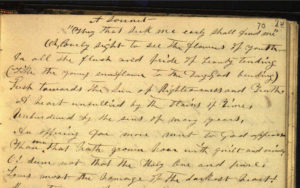 A Sonnet
"They that seek me early shall find me"
Lovely sight to see the flowers of youth
In all the flush and pride of beauty bending
(Like the young sunflower to the Day God bending)
Just towards the Sun of Righteousness and Truth
A heart unsullied by the stains of Time,
by the sins of many years,
An offering far more meet to God appears
Than that hath grown hoar with guilt and
O! deem not that the Holy One and pure
the homage of the darkest heart!